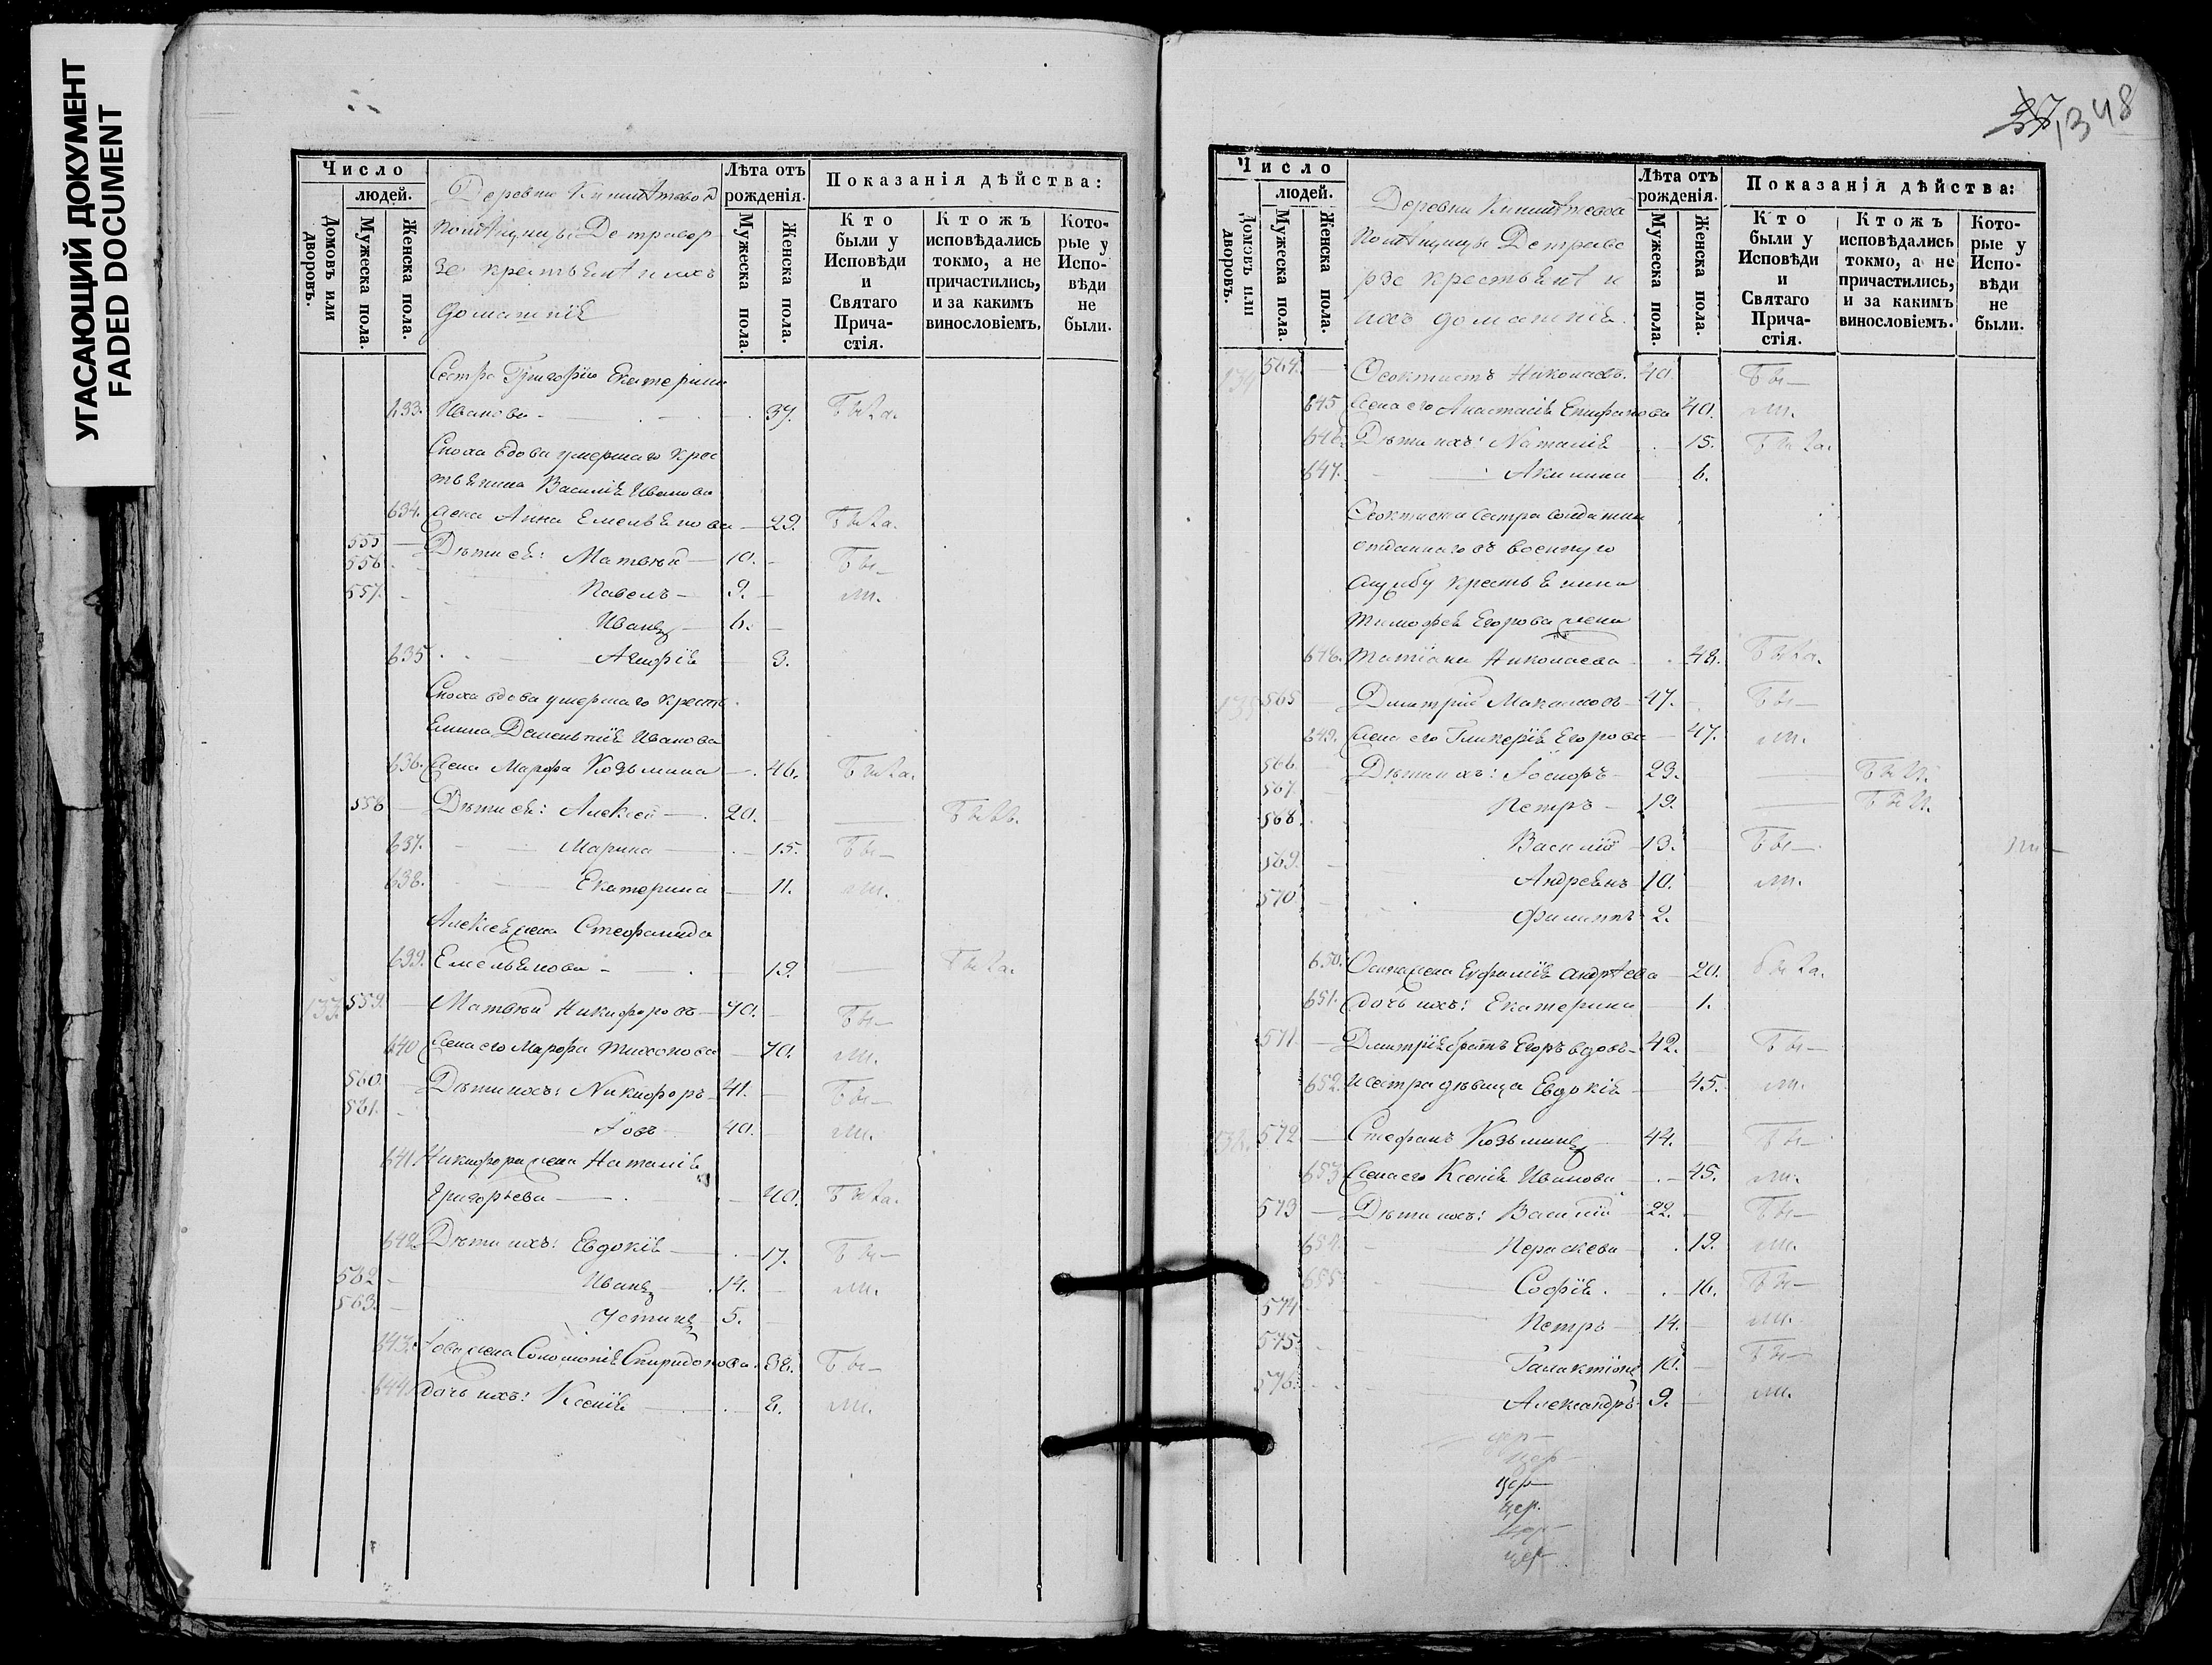 УГАСАЮЩИЙ ДОКУМЕНТ
FADED DOCUMENT
Число
людей.
Домовъ или дворовъ.
Мужеска пола.
Женска пола.
Деревни
крестьянѣ и ихъ
домашніе
Лѣта отъ рожденія.
Мужеска пола.
Женска пола.
Показанія дѣйства:
Кто были у Исповѣди и Святаго Прича-стія.
Ктожъ исповѣдались токмо, а не причастились, и за какимъ винословіемъ.
Кото-рые у Испо-вѣди не были.
Сестра Григорія Екатерина
633. Иванова 37. Была.
Сноха вдова умершаго крес
тьянина Василія Иванова
634. жена Анна Емельянова 29. Была.
555 Дѣти ея: Матвѣй 10. Бы—
556. Павелъ 9. ли.
557. Иванъ 6.
635 3.
Сноха вдова умершаго кресть
янина Иванова
636. жена Марфа Козьмина 46. Была.
558 Дѣти ея: Алексѣй 20.
637. Марина 15. Бы—
638. Екатерина 11. ли.
Алексѣя жена Стефанида
639. Емельянова 19. Была.
133. 559. Матвѣй Никифоровъ 70. Бы—
640 Жена его Марфа Тихонова 70. ли.
560. Дѣти ихъ: Никифоръ 41. Бы—
561. Іовъ 40. ли.
641 Никифора жена Наталія
Григорьева 40. Была.
642 Дѣти ихъ: Евдокія 17. Бы—
562 Иванъ 14. ли.
563. Устинъ 5.
643. Іова жена Соломонія Спиридонова 38. Бы—
644. дочь ихъ: Ксенія 8. ли.
1348
Число
людей.
Домовъ или дворовъ.
Мужеска пола.
Женска пола.
Деревни
крестьянѣ и
ихъ домашніе.
Лѣта отъ рожденія.
Мужеска пола.
Женска пола.
Показанія дѣйства:
Кто были у Исповѣди и Святаго Прича-стія.
Ктожъ исповѣдались токмо, а не причастились, и за какимъ винословіемъ.
Кото-рые у Испо-вѣди не были.
134 564. Ѳеоктистъ Николаевъ. 40. Бы—
645 Жена его Анастасія Епифанова 40. ли.
646. Дѣти ихъ: Наталія 15. Была.
647. Акилина 6.
Ѳеоктиста сестра солдатка
отданнаго въ военную
службу крестьянина
Тимофея Егорова жена
648. Татіана Николаева 48. Была.
135 565 Димитрій Максимовъ 47. Бы—
649. Жена его Гликерія Егорова 47. ли.
566. Дѣти ихъ: Іосифъ 23.
567. Петръ 19.
568. Василій 13. Бы—
569. Андреянъ 10. ли.
570 Филиппъ 2.
650. Осипа жена Евфимія Андрѣева 20. Была.
651. дочь ихъ: Екатерина 1.
571 Дмитрія братъ Егоръ вдовъ 42. Бы—
652. и сестра дѣвица Евдокія 45. ли.
572 Стефанъ Козьминъ 44. Бы—
653 Жена его Ксенія Иванова 45. ли.
573 Дѣти ихъ: Василій 22. Бы—
654. Параскева 19. ли.
655 Софія. 16. Бы—
574 Петръ 14. ли.
575. Галактіонъ 10. Бы—
576. Александръ 9. ли.